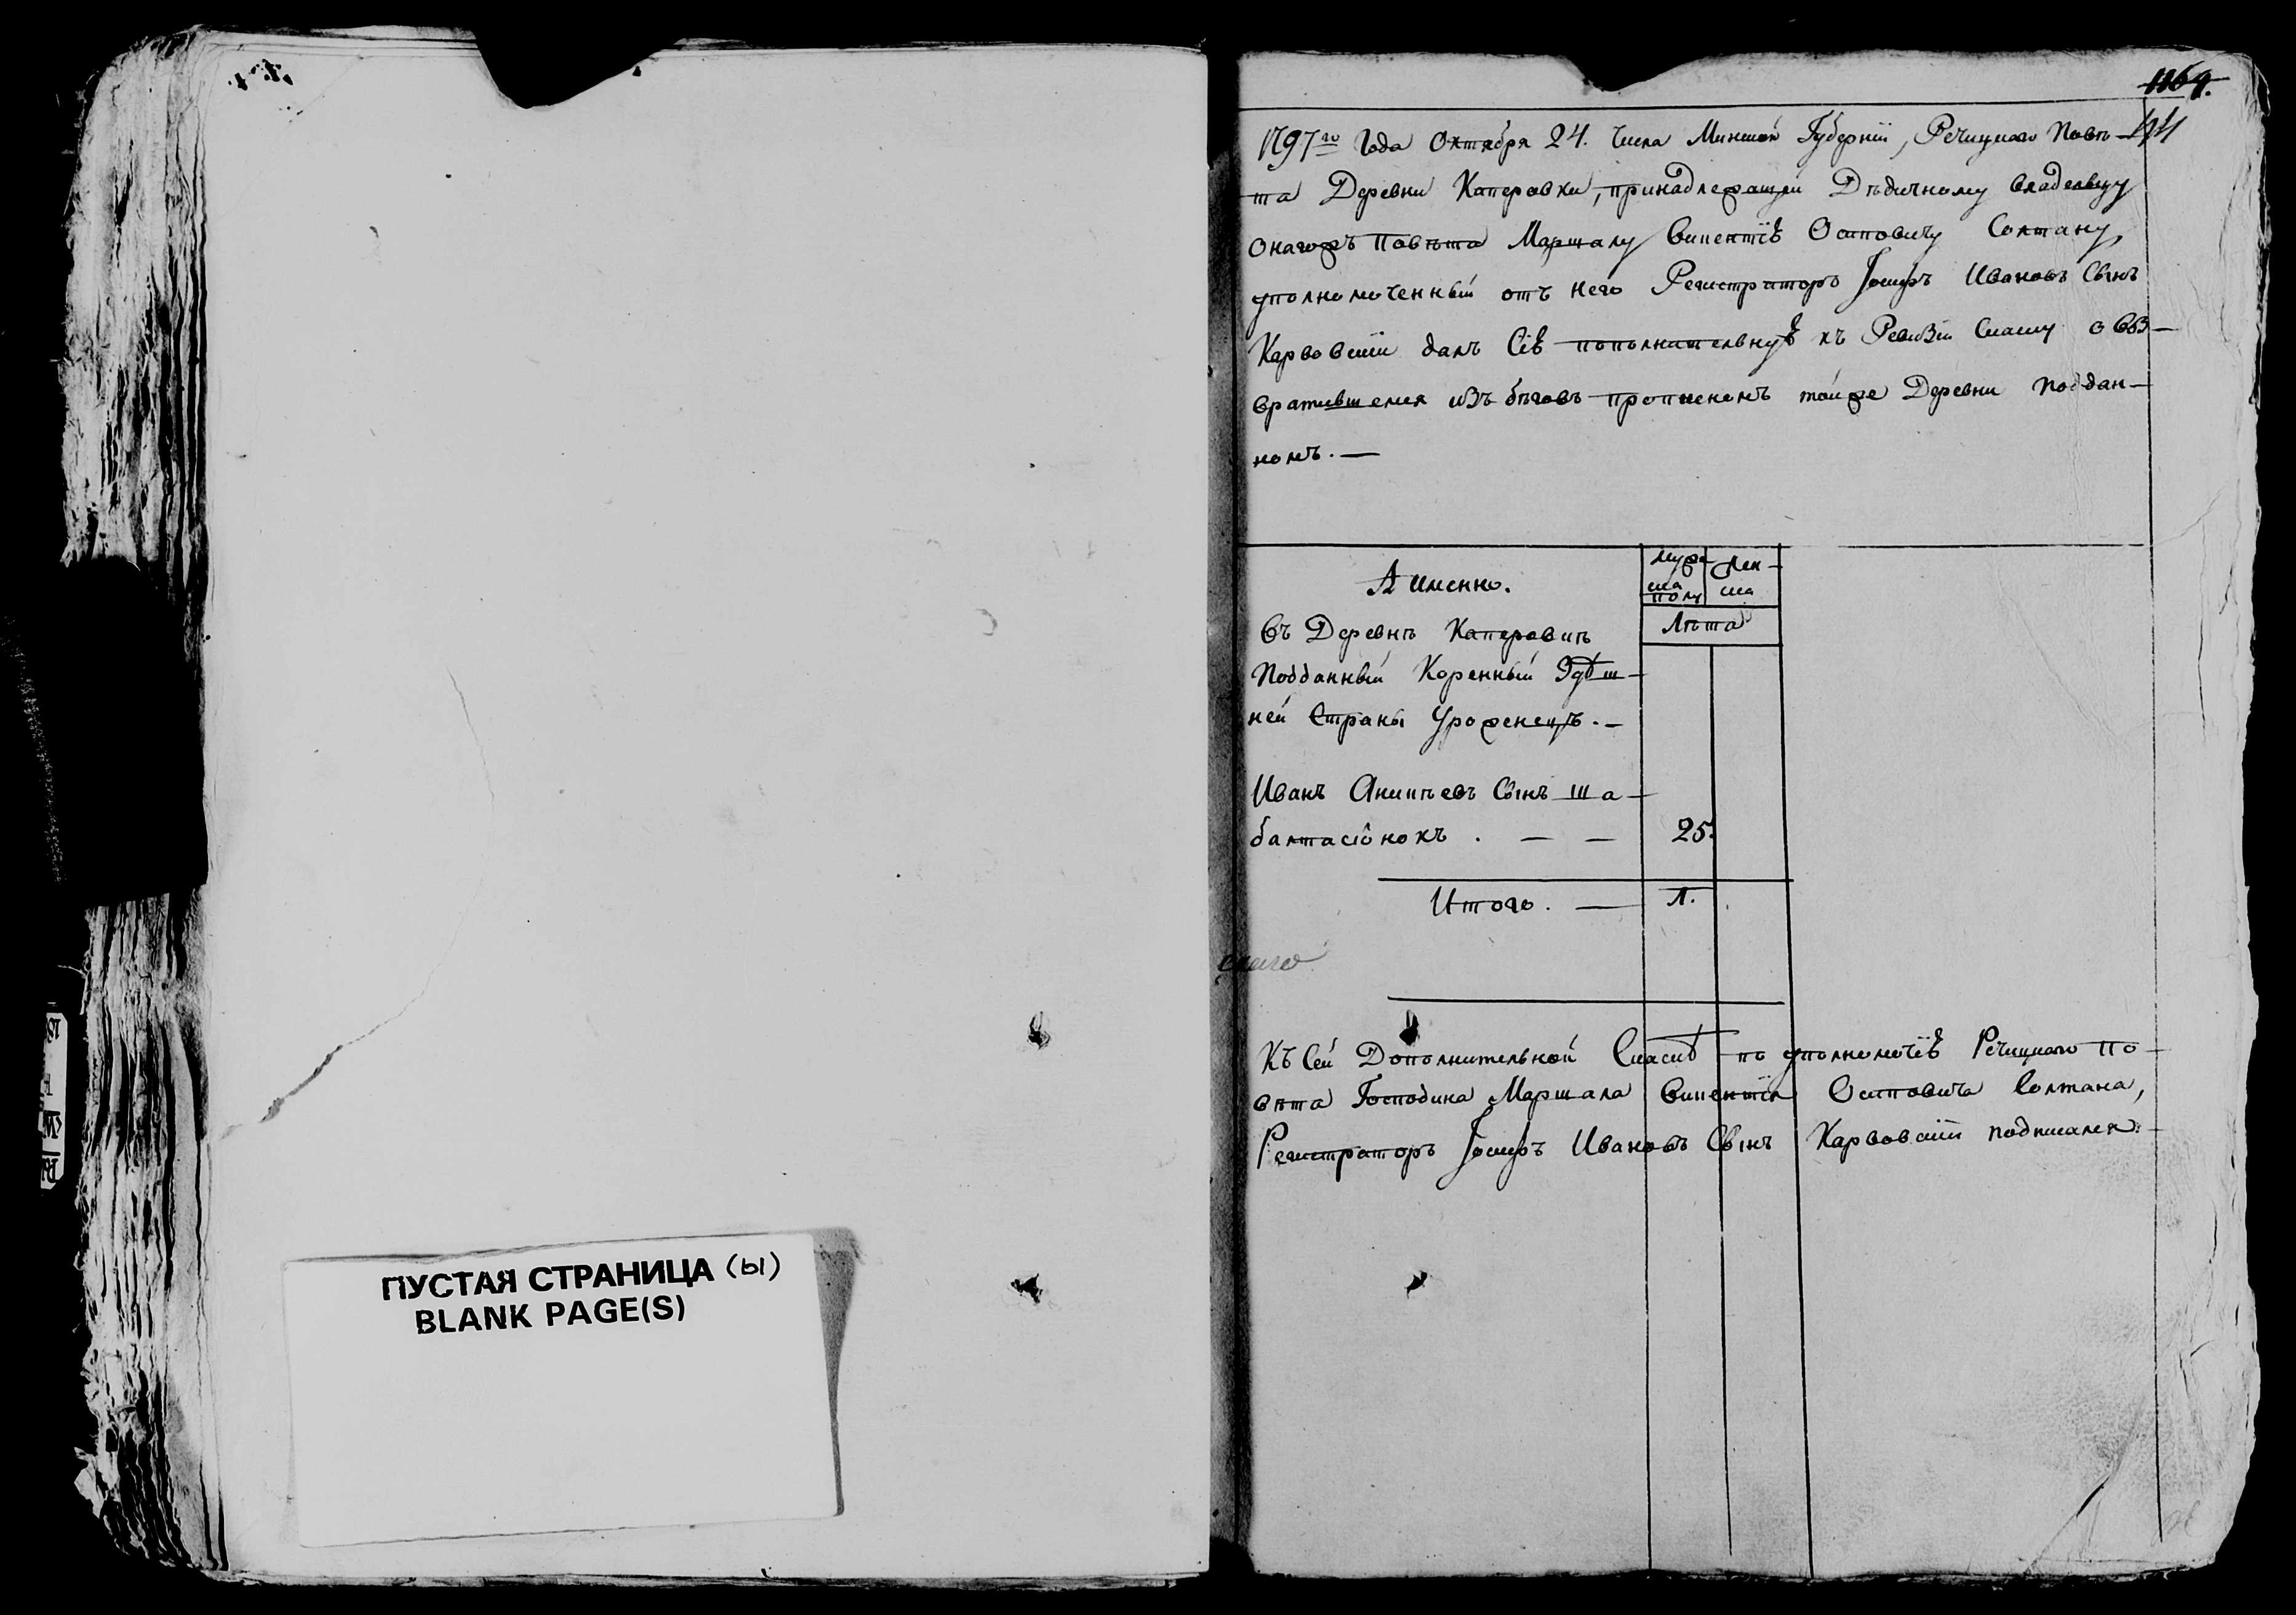 1169.
1797го Года Октября 24. Числа Минской Губернїи, Речицкаго Повѣ-
та Деревни Каперовки, принадлежащей Дѣдичному владельцу
онагожъ Повѣта Маршалу Винентїю Осиповичу Солтану,
уполномоченный отъ него Регистраторъ Іосифъ Ивановъ Сынъ
Карвовскїй далъ Сїю пополнительную къ Ревизїи Скаску о воз-
вратившемся изъ бѣговъ прописномъ тойже Деревни поддан-
номъ. —
А именно.
муже
ска
полу
жен-
ска
Лѣта
Въ Деревнѣ Каперовкѣ
Подданный Коренный Здѣш-
ней Страны уроженецъ. —
Иванъ Ананьевъ Сынъ Ша-
балтасіонокъ . — — 25.
Итого. — 1.
скаго
Къ Сей Дополнительной Скаскѣ по уполномочїю Речицкаго По-
вѣта Господина Маршала Винентїя Осиповича Солтана,
Регистраторъ Іосифъ Ивановъ Сынъ Карвовскїй подписался.
ПУСТАЯ СТРАНИЦА (ы)
BLANK PAGE(S)